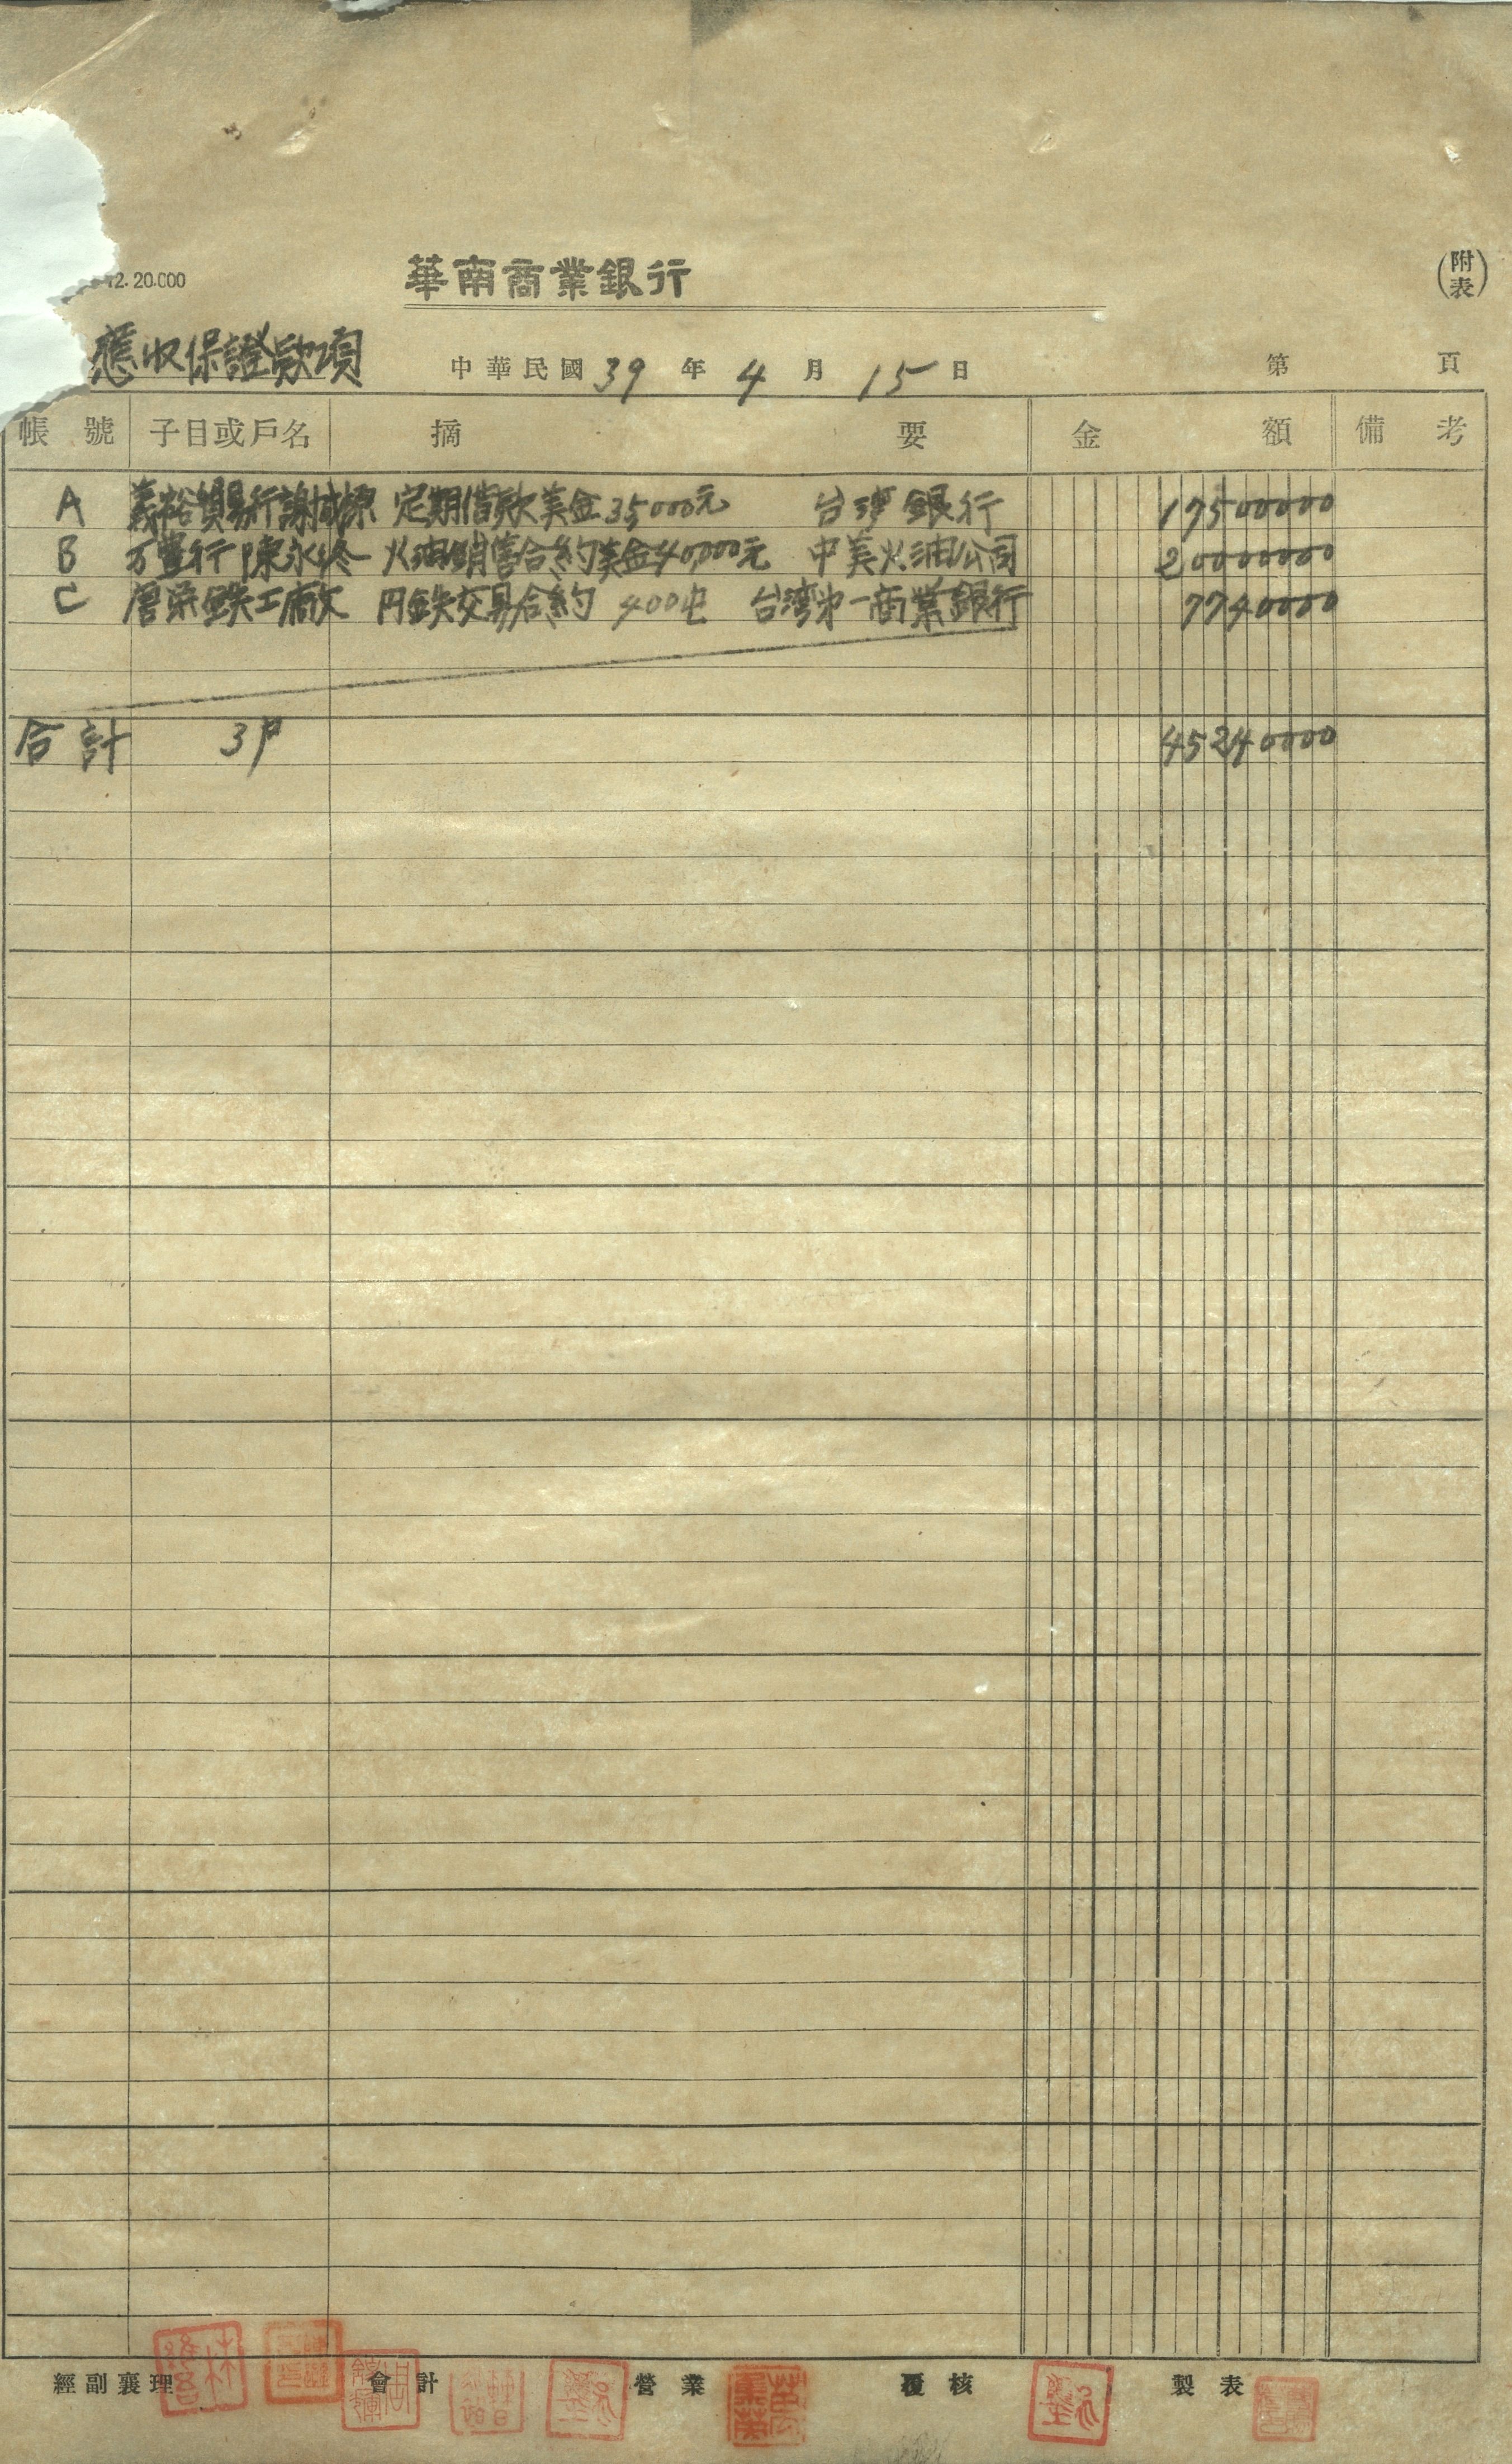 12. 20.000
華南商業銀行
(附表)
應收保證款項 中華民國 39 年 4 月 15 日 第 頁
帳號 子目或戶名 摘要 金額 備考
A 義裕貿易行謝成源 定期借款美金35,000元 台灣銀行 17500000
B 万豊行陳永 火油銷售合約美金40,000元 中美火油公司 20000000
C 唐榮鉄工廠 円鉄交易合約 400屯 台湾第一商業銀行 7740000
合計 3戶 45240000
經副襄理 會計 營業 覆核 製表